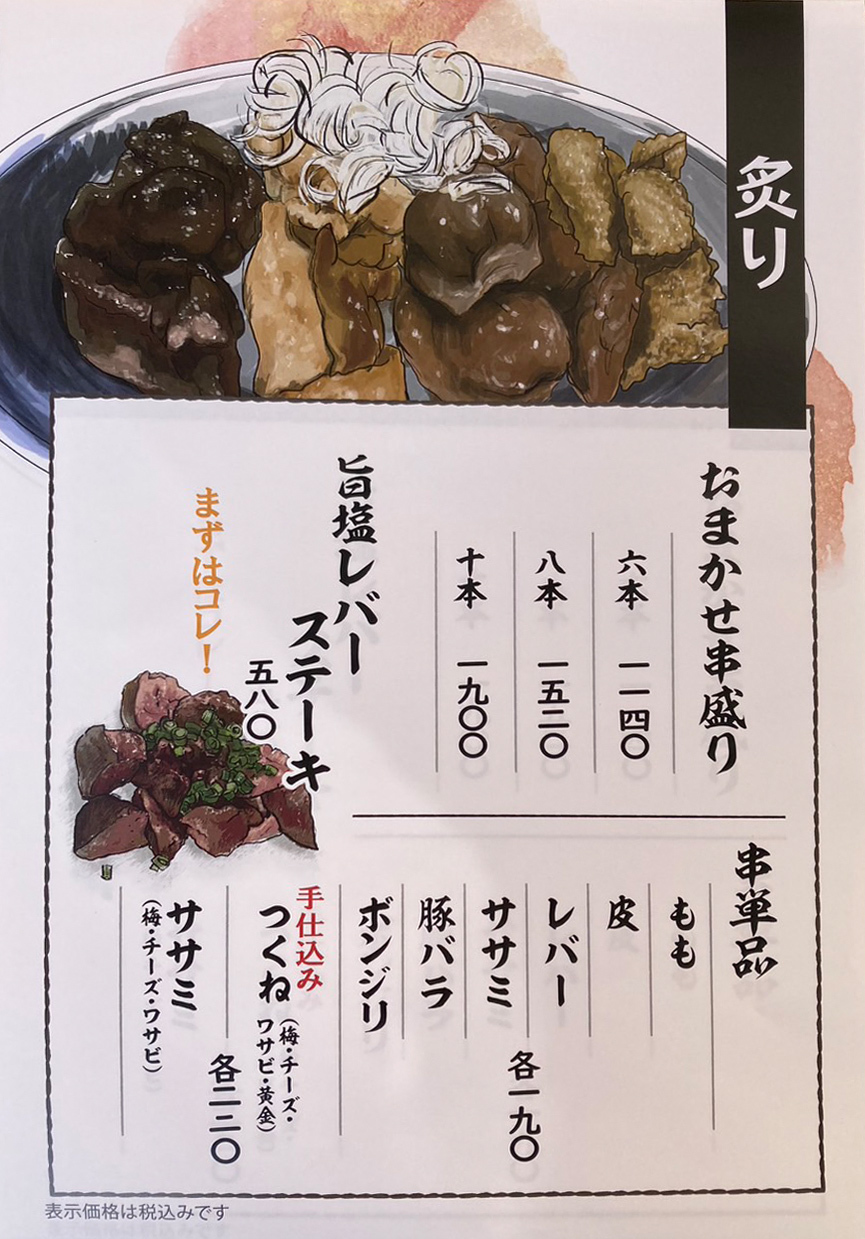 炙り
おまかせ串盛り
六本 一一四〇
八本 一五二〇
十本 一九〇〇
旨塩レバー
ステーキ
五八〇
まずはコレ！
串単品
もも
皮
レバー
ササミ
豚バラ
ボンジリ
各一九〇
手仕込み
つくね
（梅・チーズ・
ワサビ・黄金）
ササミ
（梅・チーズ・ワサビ）
各二二〇
表示価格は税込みです